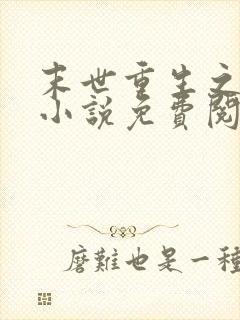 末世重生之
小說免費閱
磨難也是一種